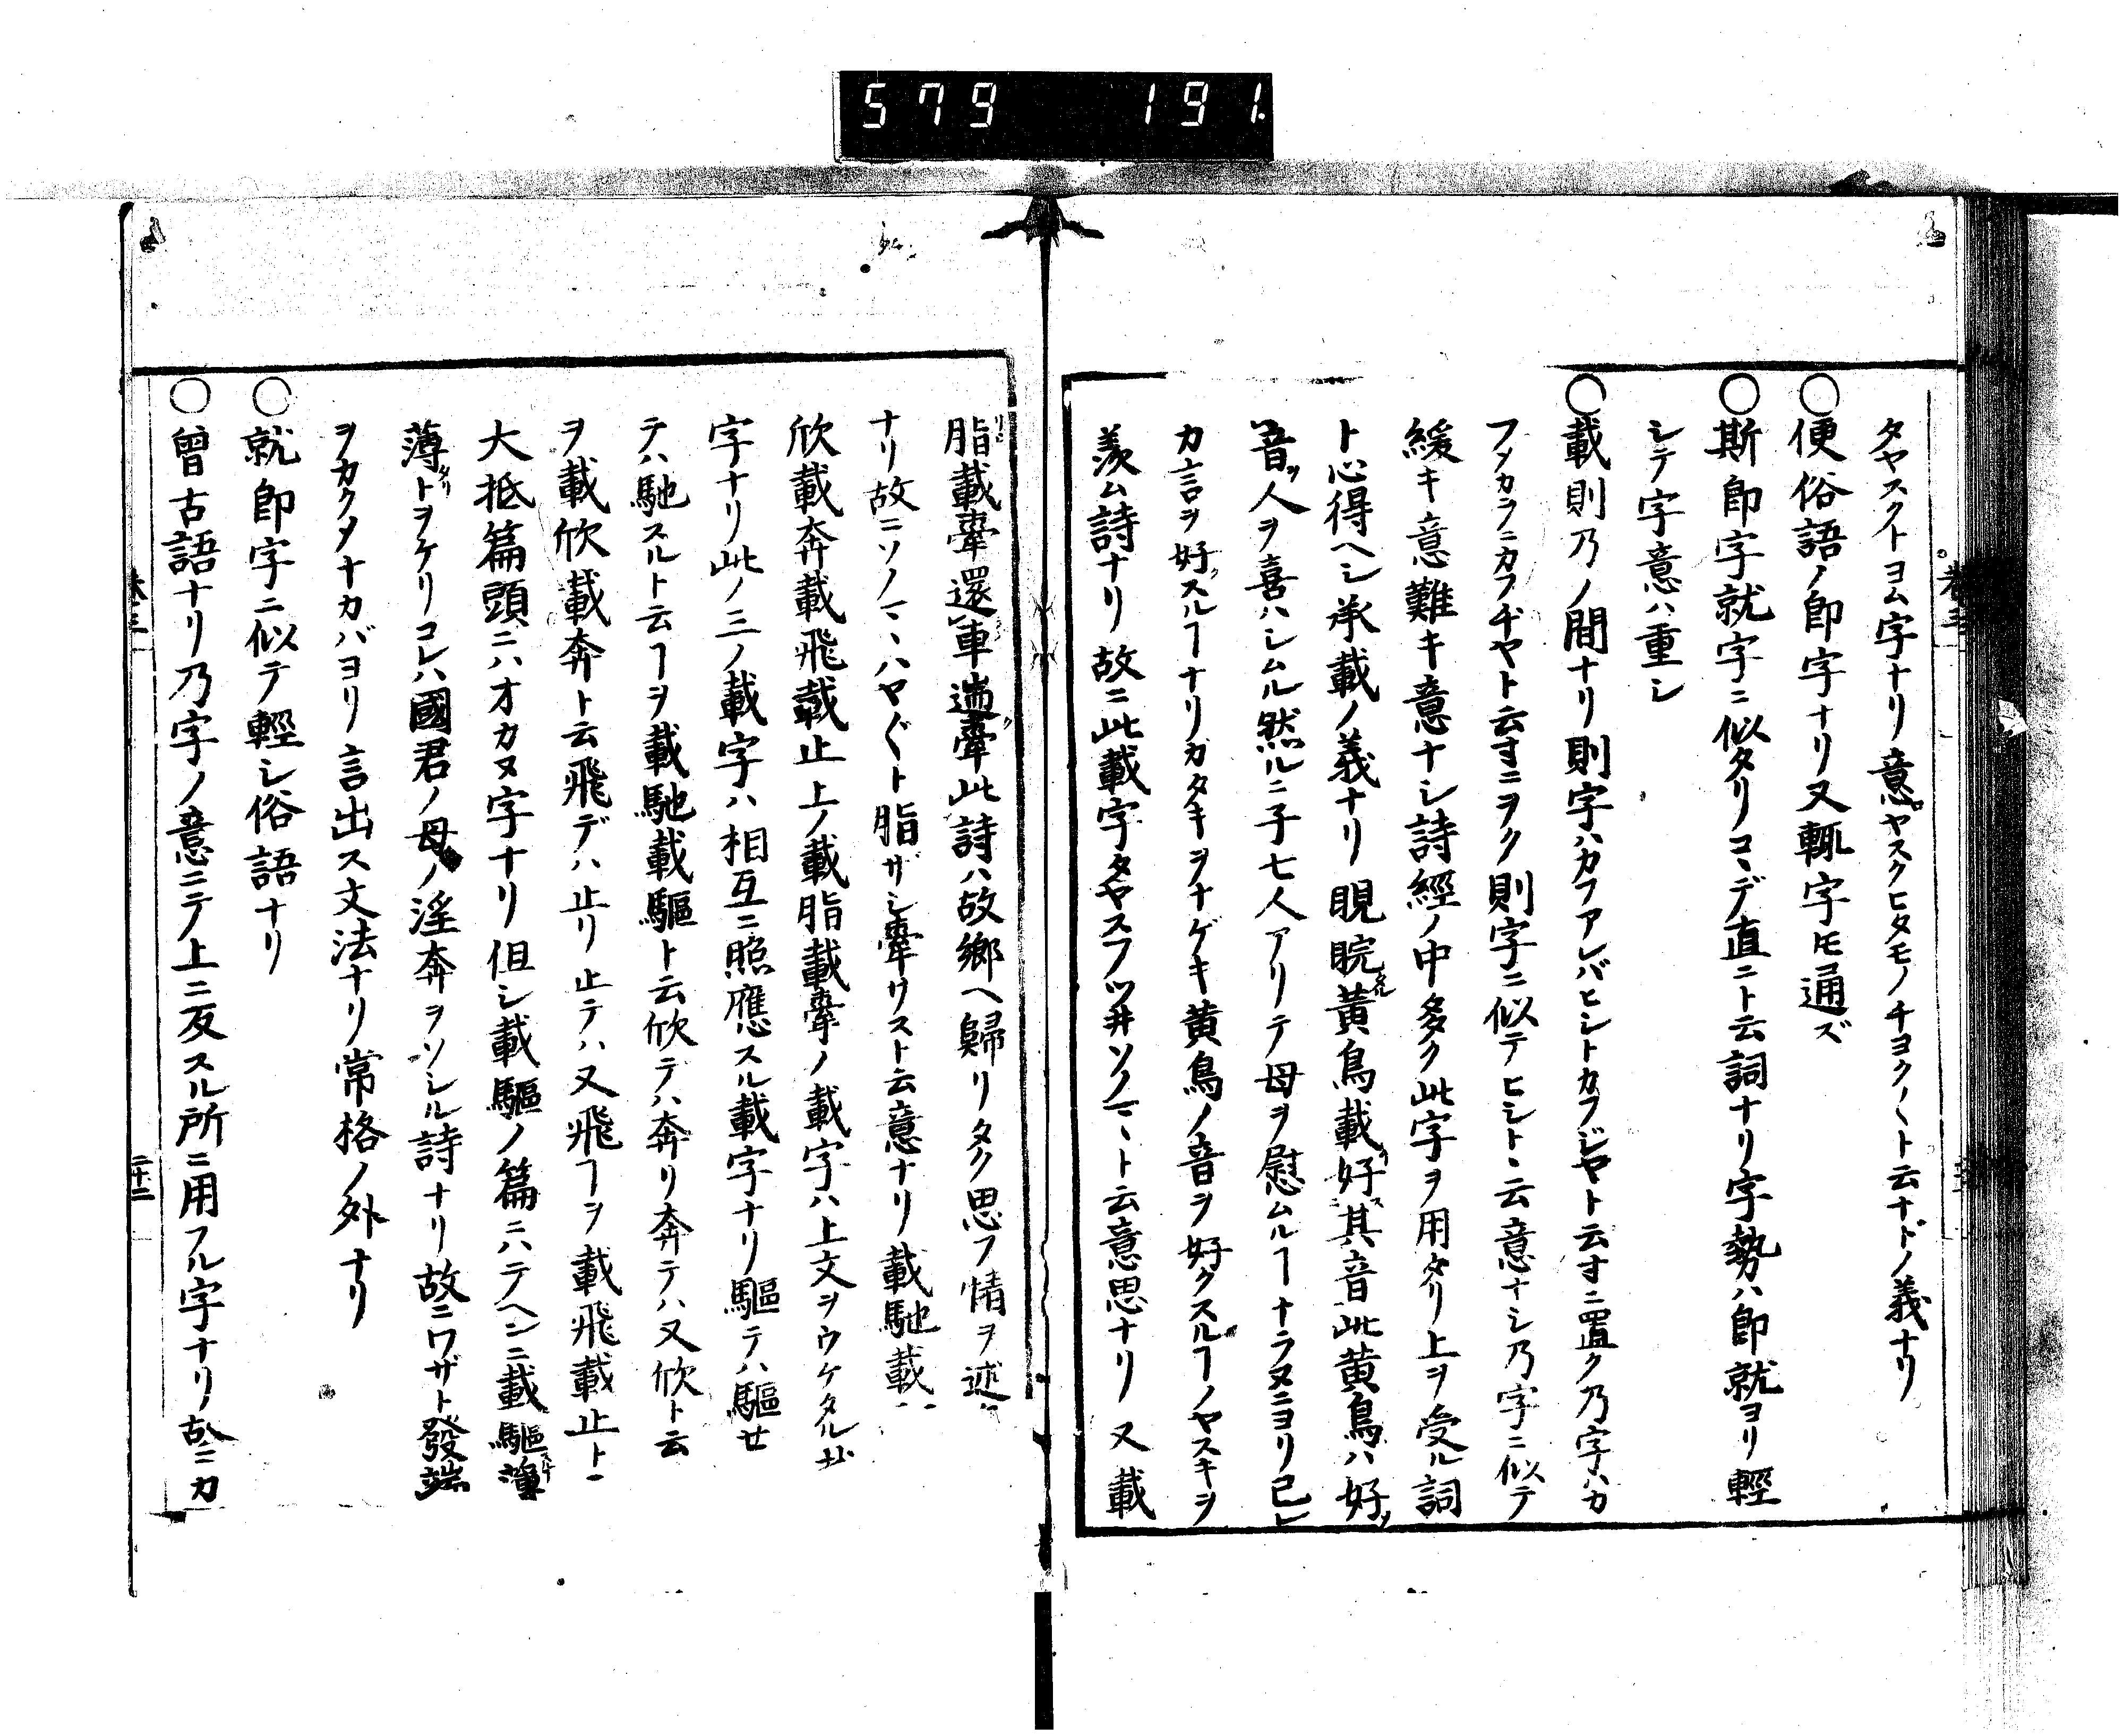 579 191.
タヤスクトヨム字ナリ意ヤスクヒタモノチヨク〱ト云ナドノ義ナリ
○便俗語ノ即字ナリ又輒字ニモ通ズ
○斯即字就字ニ似タリコヽデ直ニト云詞ナリ字勢ハ即就ヨリ輕
シテ字意ハ重シ
○載則乃ノ間ナリ則字ハカフアレバヒシトカフジヤト云寸ニ置ク乃字ハカ
フメカラニカフヂヤト云寸ニヲク則字ニ似テヒシトヽ云意ナシ乃字ニ似テ
緩キ意難キ意ナシ詩經ノ中多ク此字ヲ用タリ上ヲ受ル詞
ト心得ヘシ承載ノ義ナリ睍睆黃鳥載好其音此黄鳥ハ好
音人ヲ喜ハシムル然ルニ子七人アリテ母ヲ慰ムルヿナラヌニヨリ己
カ言ヲ好スルヿナリガタキヲナゲキ黄鳥ノ音ヲ好クスルヿノヤスキヲ
羨ム詩ナリ故ニ此載字タヤスフツ井ソノマヽト云意思ナリ又載
脂載舝還車遄舝此詩ハ故鄉ヘ歸リタク思フ情ヲ述
ナリ故ニソノマヽハヤ〲ト脂ザシ舝サスト云意ナリ載馳載
欣載奔載飛載止上ノ載脂載舝ノ載字ハ上文ヲウケタル
字ナリ此ノ三ノ載字ハ相互ニ照應スル載字ナリ驅テハ驅セ
テハ馳スルト云ヿヲ載馳載驅ト云欣テハ奔リ奔テハ又欣ト云
ヲ載欣載奔ト云飛デハ止リ止テハ又飛ヿヲ載飛載止ト
大抵篇頭ニハオカヌ字ナリ但シ載驅ノ篇ニハテヘンニ載驅薄
薄トヲケリコレハ國君ノ母ノ淫奔ヲソシル詩ナリ故ニワザト發端
ヲカクタナカバヨリ言出ス文法ナリ常格ノ外ナリ
○就即字ニ似テ輕シ俗語ナリ
○曾古語ナリ乃字ノ意ニテ上ニ反スル所ニ用フル字ナリ故ニカ